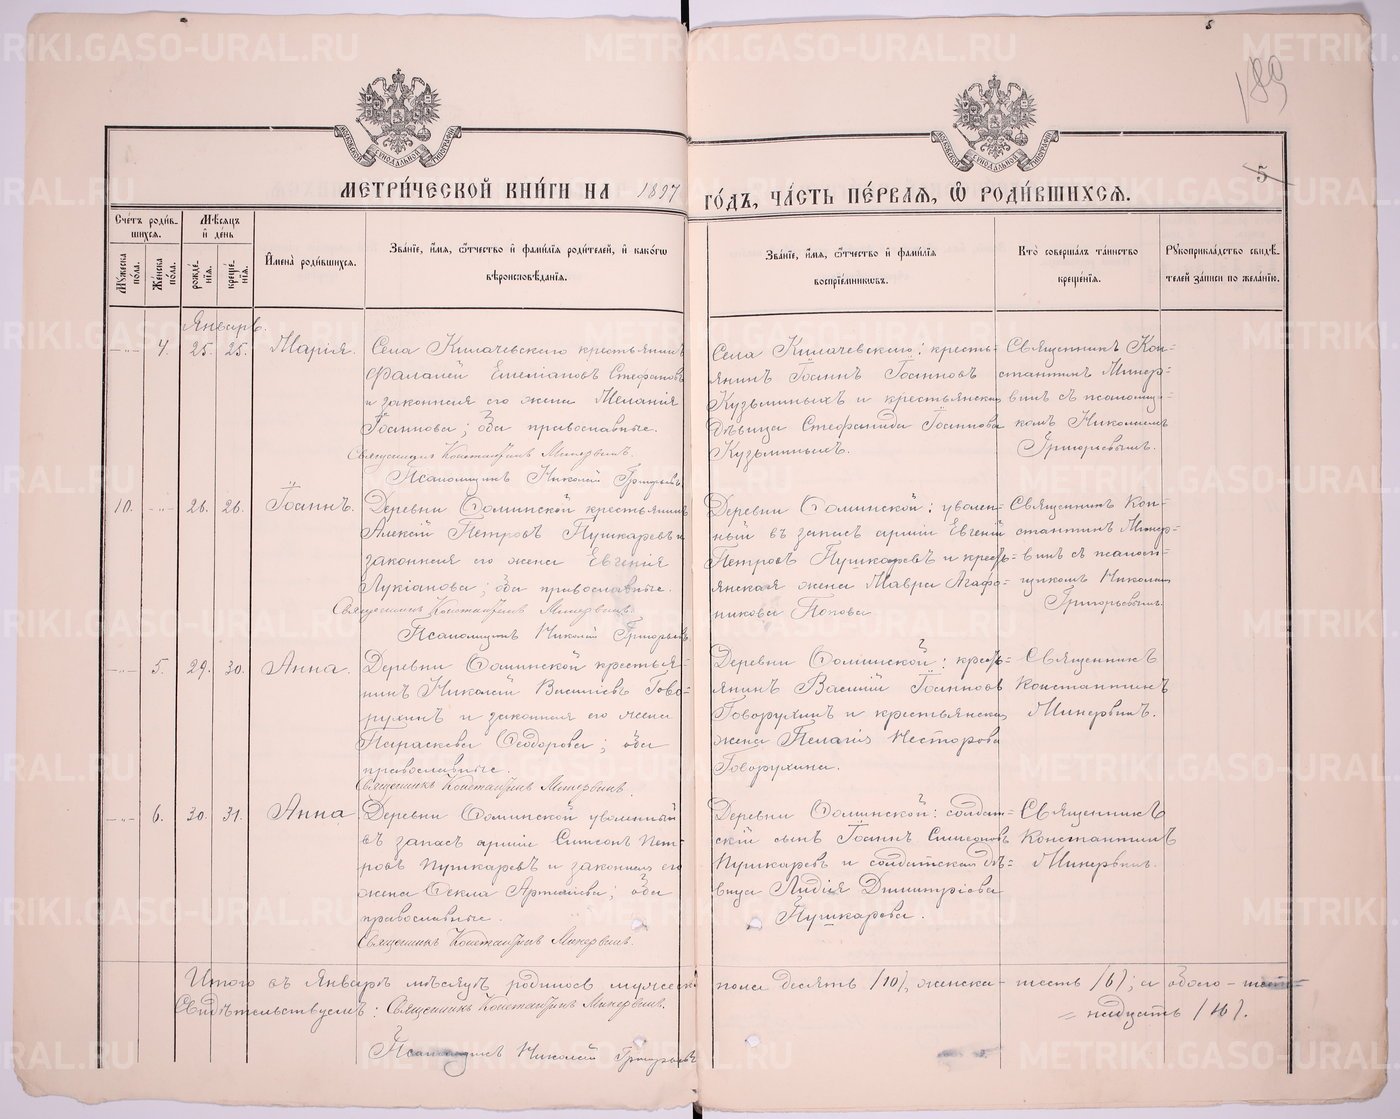 METRIKI.GASO-URAL.RU
189
5
МЕТРИ́ЧЕСКОЙ КНИ́ГИ НА 1897 ГО́ДЪ, ЧА́СТЬ ПЕ́РВАЯ, Ѽ РОДИ́ВШИХСЯ.
Сче́тъ роди́вшихся.
Мꙋжеска по́ла.
Же́нска по́ла.
Мѣ́сяцъ и́ де́нь
рожде́нїя.
креще́нїя.
Имена̀ роди́вшихся.
Зва́нїе, и́мя, ѻ́тчество и фами́лїя роди́телей, и како́гѡ вѣроисповѣ́данїя.
Зва́нїе, и́мя, ѻ́тчество и фами́лїя воспрїе́мникѡвъ.
Кто̀ соверша́лъ та́инство креще́нїя.
Рꙋкоприкла́дство свидѣ́телей за́писи по жела́нїю.
Январь.
4. 25. 25. Марія.
Села Килачевскаго крестьянинъ
Фалалей Емеліановъ Стефановъ
и законная его жена Меланія
Іоаннова; оба православные.
Священникъ Константинъ Минервинъ.
Псаломщикъ Николай Григорьевъ
Села Килачевскаго: кресть-
янинъ Іоаннъ Іоанновъ
Кузьминыхъ и крестьянская
дѣвица Стефанида Іоаннова
Кузьминыхъ.
Священникъ Кон-
стантинъ Минер-
винъ съ псаломщи-
комъ Николаемъ
Григорьевымъ.
10. 26. 26. Іоаннъ.
Деревни Фоминской крестьянинъ
Алексѣй Петровъ Пушкаревъ и
законная его жена Евгенія
Лукіанова; оба православные.
Священникъ Константинъ Минервинъ.
Псаломщикъ Николай Григорьевъ
Деревни Фоминской: уволен-
ный въ запасъ арміи Евгеній
Петровъ Пушкаревъ и кресть-
янская жена Мавра Агафо-
никова Попова
Священникъ Кон-
стантинъ Минер-
винъ съ псалом-
щикомъ Николаемъ
Григорьевымъ.
5. 29. 30. Анна.
Деревни Фоминской крестья-
нинъ Николай Василіевъ Гово-
рухинъ и законная его жена
Параскева Ѳеодорова; оба
православные.
Священникъ Константинъ Минервинъ.
Деревни Фоминской: кресть-
янинъ Василій Іоанновъ
Говорухинъ и крестьянская
жена Пелагія Несторова
Говорухина.
Священникъ
Константинъ
Минервинъ.
6. 30. 31. Анна
Деревни Фоминской уволенный
въ запасъ арміи Симеонъ Пет-
ровъ Пушкаревъ и законная его
жена Ѳекла Артеміева; оба
православные.
Священникъ Константинъ Минервинъ.
Деревни Фоминской: солдат-
скій сынъ Іоаннъ Симеоновъ
Пушкаревъ и солдатская дѣ-
вица Лидія Димитріева
Пушкарева.
Священникъ
Константинъ
Минервинъ.
Итого въ Январѣ мѣсяцѣ родилось мужеска пола десять /10/, женска - шесть /6/; а обоего - шест-
надцать /16/.
Свидѣтельствуемъ: Священникъ Константинъ Минервинъ.
Псаломщикъ Николай Григорьевъ